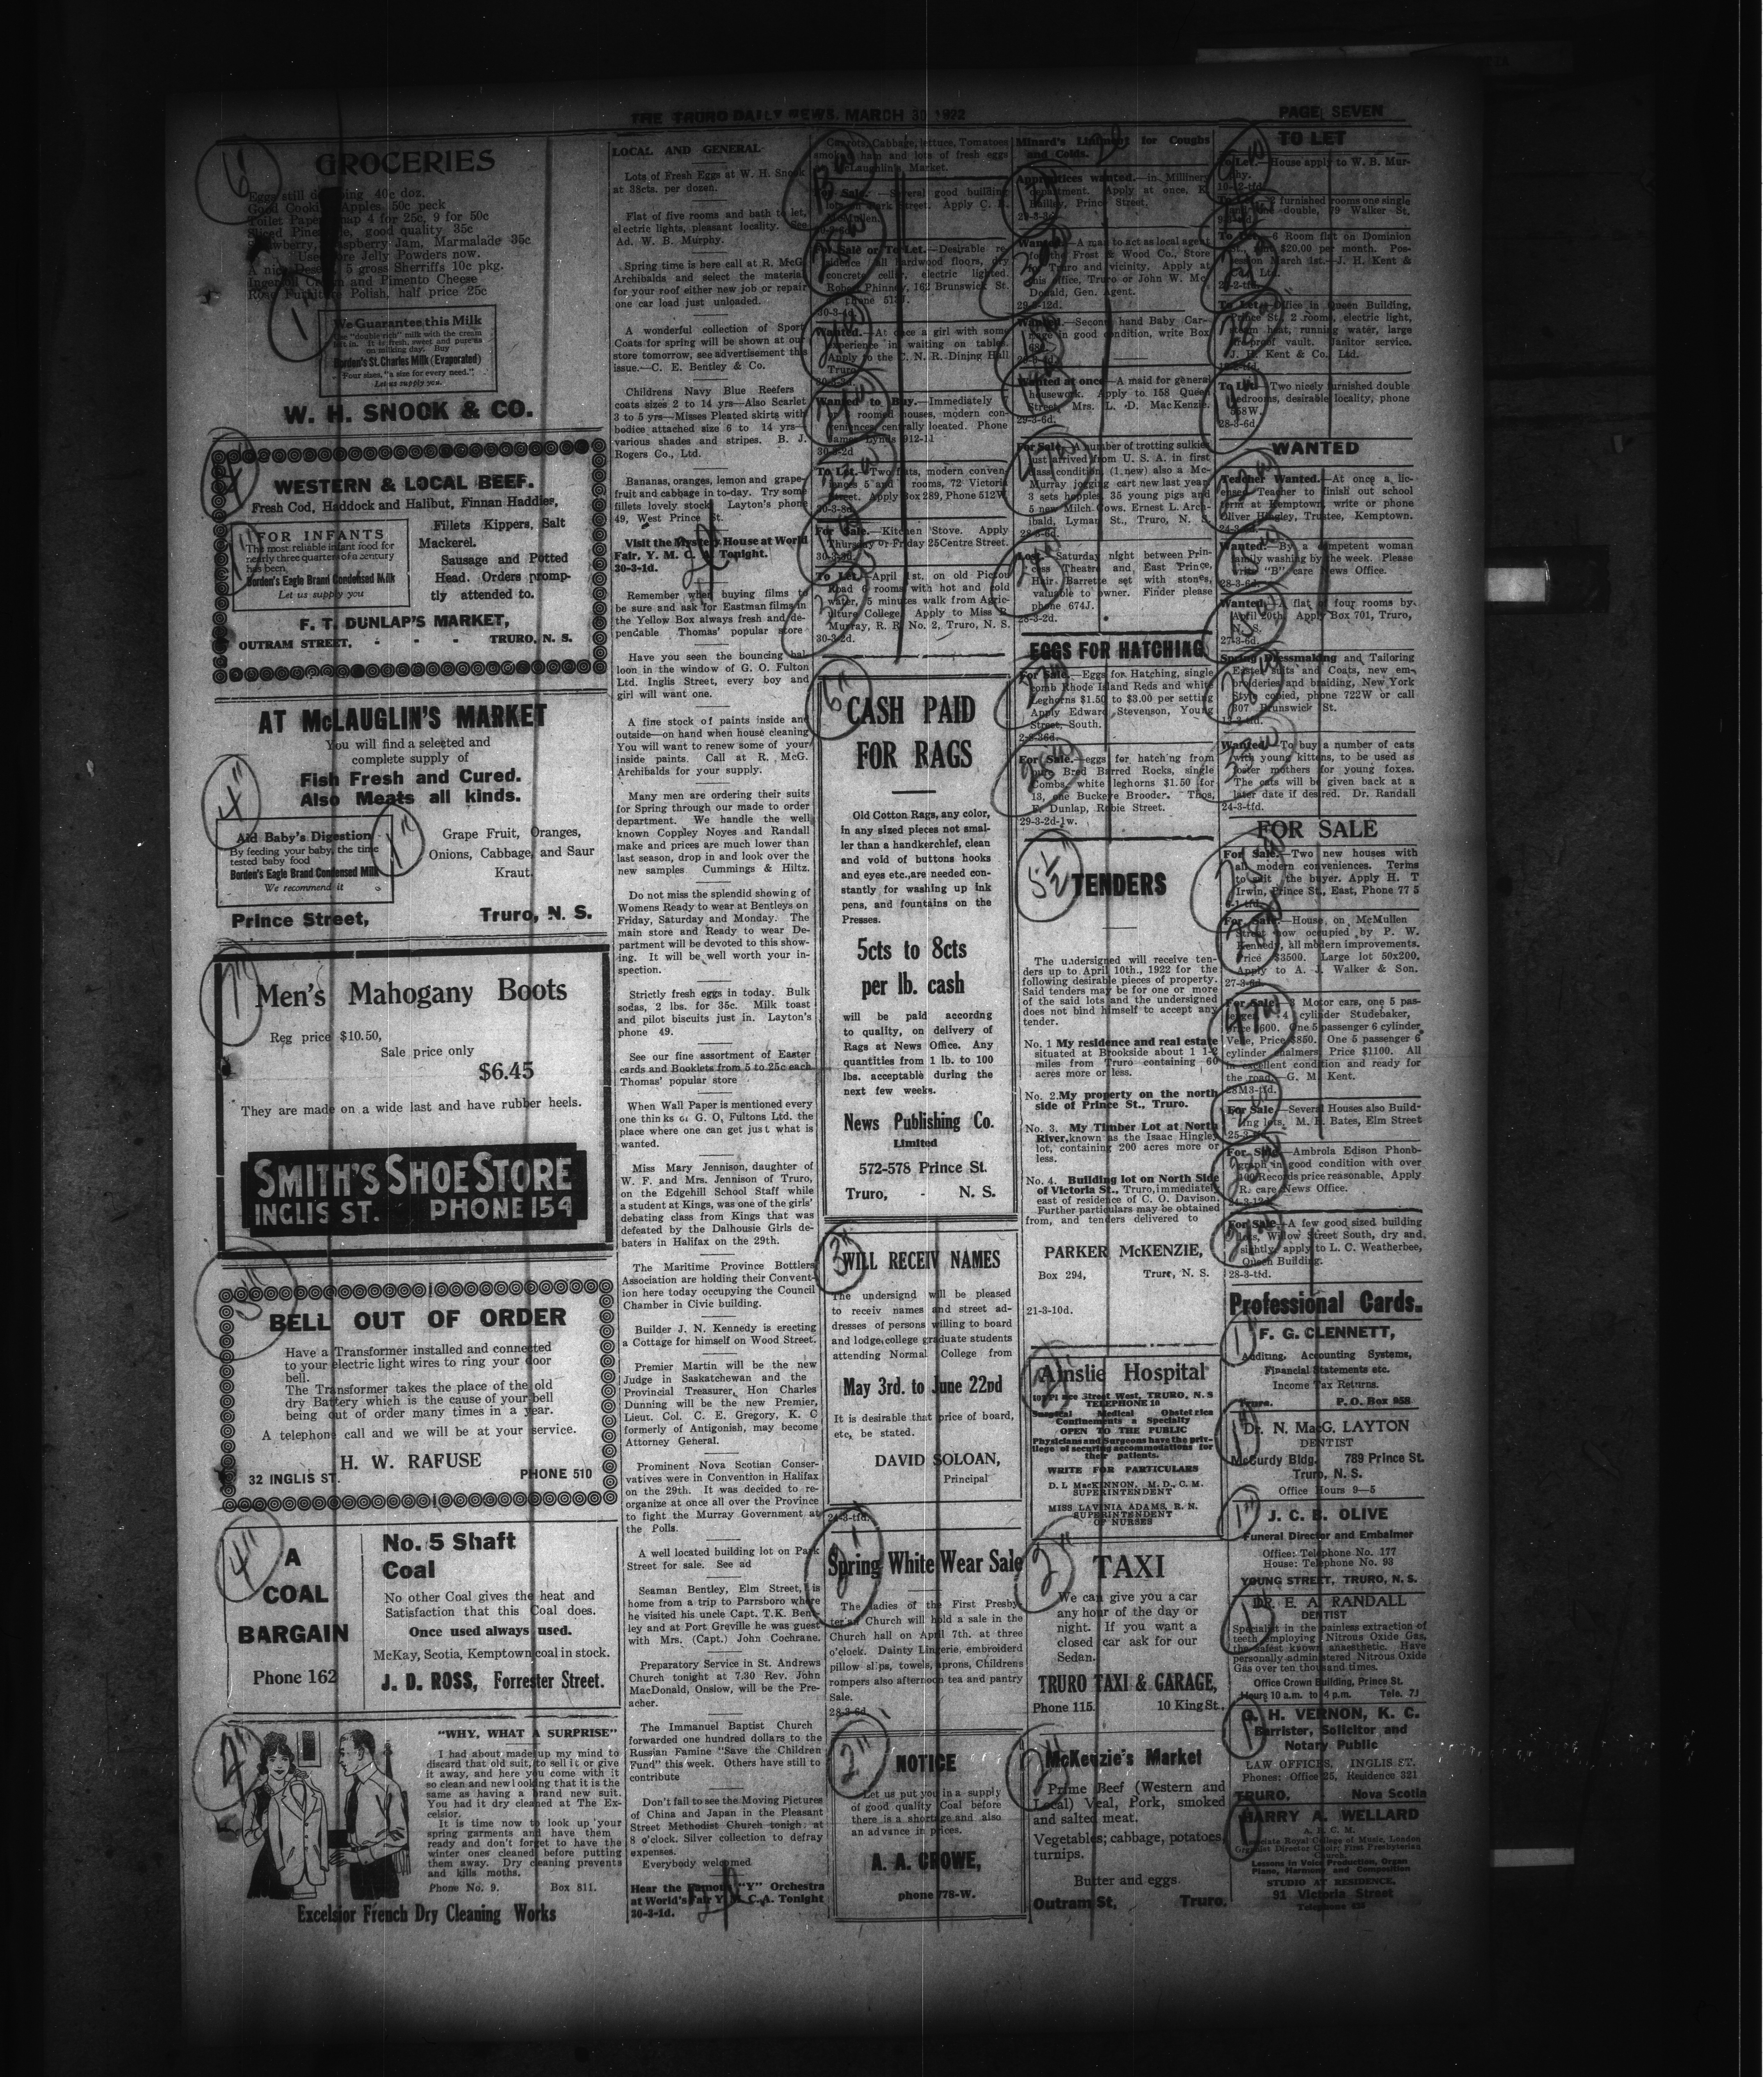 THE TRURO DAILY NEWS, MARCH 30 1922
PAGE SEVEN
GROCERIES
Eggs still 40c doz.
Apples 50c peck
4 for 25c, 9 for 50c
good quality 35c
Jam, Marmalade 35c
Jelly Powders now.
5 gross Sherriffs 10c pkg.
and Pimento Cheese
Polish, half price 25c
We Guarantee this Milk
Borden's St. Charles Milk (Evaporated)
Four sizes, "a size for every need."
Let us supply you.
W. H. SNOOK & CO.
WESTERN & LOCAL BEEF.
Fresh Cod, Haddock and Halibut, Finnan Haddies,
FOR INFANTS
The most reliable infant food for
nearly three quarters of a century
has been,
Borden's Eagle Brand Condensed Milk
Let us supply you
Fillets Kippers, Salt
Mackerel.
Sausage and Potted
Head. Orders promp-
tly attended to.
F. T. DUNLAP'S MARKET,
OUTRAM STREET, - - - TRURO, N. S.
AT McLAUGLIN'S MARKET
You will find a selected and
complete supply of
Fish Fresh and Cured.
Also Meats all kinds.
Aid Baby's Digestion
By feeding your baby, the time
tested baby food
Borden's Eagle Brand Condensed Milk
We recommend it
Grape Fruit, Oranges,
Onions, Cabbage, and Saur
Kraut.
Prince Street, Truro, N. S.
Men's Mahogany Boots
Reg price $10.50,
Sale price only
$6.45
They are made on a wide last and have rubber heels.
SMITH'S SHOE STORE
INGLIS ST. PHONE 154
BELL OUT OF ORDER
Have a Transformer installed and connected
to your electric light wires to ring your door
bell.
The Transformer takes the place of the old
dry Battery which is the cause of your bell
being out of order many times in a year.
A telephone call and we will be at your service.
H. W. RAFUSE
32 INGLIS ST. PHONE 510
A
COAL
BARGAIN
Phone 162
No. 5 Shaft
Coal
No other Coal gives the heat and
Satisfaction that this Coal does.
Once used always used.
McKay, Scotia, Kemptown coal in stock.
J. D. ROSS, Forrester Street.
"WHY, WHAT A SURPRISE"
I had about made up my mind to
discard that old suit, to sell it or give
it away, and here you come with it
so clean and new looking that it is the
same as having a brand new suit.
You had it dry cleaned at The Ex-
celsior.
It is time now to look up your
spring garments and have them
ready and don't forget to have the
winter ones cleaned before putting
them away. Dry cleaning prevents
and kills moths.
Phone No. 9. Box 811.
Excelsior French Dry Cleaning Works
LOCAL AND GENERAL
Lots of Fresh Eggs at W. H. Snook
at 38cts. per dozen.
Flat of five rooms and bath to let,
electric lights, pleasant locality. See
Ad. W. B. Murphy.
Spring time is here call at R. McG.
Archibalds and select the material
for your roof either new job or repair
one car load just unloaded.
A wonderful collection of Sport
Coats for spring will be shown at our
store tomorrow, see advertisement this
issue.—C. E. Bentley & Co.
Childrens Navy Blue Reefers
coats sizes 2 to 14 yrs—Also Scarlet
3 to 5 yrs—Misses Pleated skirts with
bodice attached size 6 to 14 yrs—
various shades and stripes. B. J.
Rogers Co., Ltd.
Bananas, oranges, lemon and grape-
fruit and cabbage in to-day. Try some
fillets lovely stock Layton's phone
49, West Prince St.
Visit the Mystery House at World
Fair, Y. M. C. A. Tonight.
30-3-1d.
Remember when buying films to
be sure and ask for Eastman films in
the Yellow Box always fresh and de-
pendable Thomas' popular store
Have you seen the bouncing bal
loon in the window of G. O. Fulton
Ltd. Inglis Street, every boy and
girl will want one.
A fine stock of paints inside and
outside—on hand when house cleaning
You will want to renew some of your
inside paints. Call at R. McG.
Archibalds for your supply.
Many men are ordering their suits
for Spring through our made to order
department. We handle the well
known Coppley Noyes and Randall
make and prices are much lower than
last season, drop in and look over the
new samples Cummings & Hiltz.
Do not miss the splendid showing of
Womens Ready to wear at Bentleys on
Friday, Saturday and Monday. The
main store and Ready to wear De-
partment will be devoted to this show-
ing. It will be well worth your in-
spection.
Strictly fresh eggs in today. Bulk
sodas, 2 lbs. for 35c. Milk toast
and pilot biscuits just in. Layton's
phone 49.
See our fine assortment of Easter
cards and Booklets from 5 to 25c each
Thomas' popular store
When Wall Paper is mentioned every
one thinks of G. O. Fultons Ltd. the
place where one can get just what is
wanted.
Miss Mary Jennison, daughter of
W. F. and Mrs. Jennison of Truro,
on the Edgehill School Staff while
a student at Kings, was one of the girls'
debating class from Kings that was
defeated by the Dalhousie Girls de-
baters in Halifax on the 29th.
The Maritime Province Bottlers
Association are holding their Convent-
ion here today occupying the Council
Chamber in Civic building.
Builder J. N. Kennedy is erecting
a Cottage for himself on Wood Street.
Premier Martin will be the new
Judge in Saskatchewan and the
Provincial Treasurer, Hon Charles
Dunning will be the new Premier,
Lieut. Col. C. E. Gregory, K. C
formerly of Antigonish, may become
Attorney General.
Prominent Nova Scotian Conser-
vatives were in Convention in Halifax
on the 29th. It was decided to re-
organize at once all over the Province
to fight the Murray Government at
the Polls.
A well located building lot on Park
Street for sale. See ad
Seaman Bentley, Elm Street, is
home from a trip to Parrsboro where
he visited his uncle Capt. T.K. Bent
ley and at Port Greville he was guest
with Mrs. (Capt.) John Cochrane.
Preparatory Service in St. Andrews
Church tonight at 7.30 Rev. John
MacDonald, Onslow, will be the Pre-
acher.
The Immanuel Baptist Church
forwarded one hundred dollars to the
Russian Famine "Save the Children
Fund" this week. Others have still to
contribute
Don't fail to see the Moving Pictures
of China and Japan in the Pleasant
Street Methodist Church tonight at
8 o'clock. Silver collection to defray
expenses.
Everybody welcomed
Hear the Famous "Y" Orchestra
at World's Fair Y. M. C. A. Tonight
30-3-1d.
Carrots, Cabbage, lettuce, Tomatoes
smoked ham and lots of fresh eggs
McLaughlin's Market.
For Sale.—Several good building
lots on Park Street. Apply C. E.
McMullen.
For Sale or To Let.—Desirable re-
sidence all hardwood floors, dry
concrete cellar, electric lighted.
Robert Phinney, 162 Brunswick St.
phone 513J.
30-3-4d.
Wanted.—At once a girl with some
experience in waiting on tables.
Apply to the C. N. R. Dining Hall
Truro.
30-3-3d.
Wanted to Buy.—Immediately
roomed houses, modern con-
veniences, centrally located. Phone
James Lynds 912-11
30-3-2d
To Let.—Two flats, modern conven-
iences 5 and rooms, 72 Victoria
Street. Apply Box 289, Phone 512W
30-3-8d.
For Sale.—Kitchen Stove. Apply
Thursday or Friday 25 Centre Street.
30-3-3d.
To Let.—April 1st. on old Pictou
Road 6 rooms with hot and cold
water, 5 minutes walk from Agric-
ulture College. Apply to Miss R.
Murray, R. R. No. 2, Truro, N. S.
30-3-2d.
CASH PAID
FOR RAGS
Old Cotton Rags, any color,
in any sized pieces not smal-
ler than a handkerchief, clean
and void of buttons hooks
and eyes etc., are needed con-
stantly for washing up ink
pens, and fountains on the
Presses.
5cts to 8cts
per lb. cash
will be paid accordng
to quality, on delivery of
Rags at News Office. Any
quantities from 1 lb. to 100
lbs. acceptable during the
next few weeks.
News Publishing Co.
Limited
572-578 Prince St.
Truro, - N. S.
WILL RECEIV NAMES
The undersignd will be pleased
to receiv names and street ad-
dresses of persons willing to board
and lodge, college graduate students
attending Normal College from
May 3rd. to June 22nd
It is desirable that price of board,
etc, be stated.
DAVID SOLOAN,
Principal
24-3-tfd.
Spring White Wear Sale
The ladies of the First Presby-
ter'an Church will hold a sale in the
Church hall on April 7th. at three
o'clock. Dainty Lingerie, embroiderd
pillow slips, towels, aprons, Childrens
rompers also afternoon tea and pantry
Sale.
28-3-6d.
NOTICE
Let us put you in a supply
of good quality Coal before
there is a shortage and also
an advance in prices.
A. A. CROWE,
phone 778-W.
Minard's Liniment for Coughs
and Colds.
Apprentices wanted.—in Millinery
department. Apply at once, K
Bailley, Prince Street.
29-3-3d.
Wanted.—A man to act as local agent
for the Frost & Wood Co., Store
in Truro and vicinity. Apply at
this office, Truro or John W. Mc-
Donald, Gen. Agent.
29-3-12d.
Wanted.—Second hand Baby Car-
riage in good condition, write Box
Wanted at once—A maid for general
housework. Apply to 158 Queen
Street, Mrs. L. D. MacKenzie.
29-3-6d.
For Sale.—A number of trotting sulkies
just arrived from U. S. A. in first
class condition (1 new) also a Mc-
Murray jogging cart new last year
3 sets hopples, 35 young pigs and
5 new Milch Cows. Ernest L. Arch-
ibald, Lyman St., Truro, N. S.
28-3-6d.
Lost.—Saturday night between Prin-
cess Theatre and East Prince,
Hair Barrette set with stones,
valuable to owner. Finder please
phone 674J.
28-3-2d.
EGGS FOR HATCHING
For Sale.—Eggs for Hatching, single
comb Rhode Island Reds and white
Leghorns $1.50 to $3.00 per setting
Apply Edward Stevenson, Young
Street, South.
For Sale.—eggs for hatching from
pure Bred Barred Rocks, single
Combs, white leghorns $1.50 for
13, one Buckeye Brooder. Thos,
F. Dunlap, Robie Street.
29-3-2d-1w.
TENDERS
The undersigned will receive ten-
ders up to April 10th., 1922 for the
following desirable pieces of property.
Said tenders may be for one or more
of the said lots and the undersigned
does not bind himself to accept any
tender.
No. 1 My residence and real estate
situated at Brookside about 1 1-2
miles from Truro containing 60
acres more or less.
No. 2. My property on the north
side of Prince St., Truro.
No. 3. My Timber Lot at North
River, known as the Isaac Hingley
lot, containing 200 acres more or
less.
No. 4. Building lot on North Side
of Victoria St., Truro, immediately
east of residence of C. O. Davison.
Further particulars may be obtained
from, and tenders delivered to
PARKER McKENZIE,
Box 294, Truro, N. S.
21-3-10d.
Ainslie Hospital
Prince Street West, TRURO, N. S
TELEPHONE 10
Surgical Medical Obstetrics
Confinements a Specialty
OPEN TO THE PUBLIC
Physicians and Surgeons have the priv-
ilege of securing accommodations for
their patients.
WRITE FOR PARTICULARS
D. L. MacKINNON, M. D., C. M.
SUPERINTENDENT
MISS LAVINIA ADAMS, R. N.
SUPERINTENDENT
OF NURSES
TAXI
We can give you a car
any hour of the day or
night. If you want a
closed car ask for our
Sedan.
TRURO TAXI & GARAGE,
Phone 115. 10 King St.,
McKenzie's Market
Prime Beef (Western and
Local) Veal, Pork, smoked
and salted meat.
Vegetables; cabbage, potatoes,
turnips.
Butter and eggs.
Outram St, Truro.
TO LET
To Let.—House apply to W. B. Mur-
phy.
To Let.—2 furnished rooms one single
and one double, 79 Walker St.
To Let.—6 Room flat on Dominion
St., rent $20.00 per month. Pos-
session March 1st.—J. H. Kent &
Co. Ltd.
To Let.—Office in Queen Building,
Prince St., 2 rooms, electric light,
steam heat, running water, large
fireproof vault. Janitor service.
J. H. Kent & Co., Ltd.
To Let.—Two nicely furnished double
bedrooms, desirable locality, phone
558W.
28-3-6d.
WANTED
Teacher Wanted.—At once a lic-
ensed Teacher to finish out school
term at Kemptown, write or phone
Oliver Hingley, Trustee, Kemptown.
24-3-6d.
Wanted.—By a competent woman
family washing by the week. Please
write "B" care News Office.
28-3-6d.
Wanted.—A flat of four rooms by
April 20th. Apply Box 701, Truro,
N. S.
27-3-6d.
Spring Dressmaking and Tailoring
Easter suits and Coats, new em-
broderies and braiding, New York
Style copied, phone 722W or call
307 Brunswick St.
Wanted.—To buy a number of cats
with young kittens, to be used as
foster mothers for young foxes.
The cats will be given back at a
later date if desired. Dr. Randall
24-3-tfd.
FOR SALE
For Sale.—Two new houses with
all modern conveniences. Terms
to suit the buyer. Apply H. T
Irwin, Prince St., East, Phone 77 5
For Sale.—House, on McMullen
Street now occupied by P. W.
Kennedy, all modern improvements.
Price $3500. Large lot 50x200.
Apply to A. J. Walker & Son.
27-3-6d.
For Sale.—3 Motor cars, one 5 pas-
senger 4 cylinder Studebaker,
Price $600. One 5 passenger 6 cylinder
Velie, Price $850. One 5 passenger 6
cylinder Chalmers, Price $1100. All
in excellent condition and ready for
the road.—G. M. Kent.
28M3-tfd.
For Sale—Several Houses also Build-
ing lots, M. H. Bates, Elm Street
For Sale.—Ambrola Edison Phonb-
graph in good condition with over
100 Records price reasonable, Apply
R. care News Office.
For Sale.—A few good sized building
lots, Willow Street South, dry and
sightly, apply to L. C. Weatherbee,
Queen Building.
28-3-tfd.
Professional Cards.
F. G. CLENNETT,
Auditing, Accounting Systems,
Financial Statements etc.
Income Tax Returns.
Truro. P. O. Box 958
Dr. N. MacG. LAYTON
DENTIST
McCurdy Bldg. 789 Prince St.
Truro, N. S.
Office Hours 9—5
J. C. B. OLIVE
Funeral Director and Embalmer
Office: Telephone No. 177
House: Telephone No. 93
YOUNG STREET, TRURO, N. S.
DR. E. A. RANDALL
DENTIST
Specialist in the painless extraction of
teeth employing Nitrous Oxide Gas,
the safest known anaesthetic. Have
personally administered Nitrous Oxide
Gas over ten thousand times.
Office Crown Building, Prince St.
Hours 10 a.m. to 4 p.m. Tele. 7J
G. H. VERNON, K. C.
Barrister, Solicitor and
Notary Public
LAW OFFICES, INGLIS ST.
Phones: Office 25, Residence 321
TRURO, Nova Scotia
HARRY A. WELLARD
A. R. C. M.
Associate Royal College of Music, London
Organist Director Choir: First Presbyterian
Church.
Lessons in Voice Production, Organ
Piano, Harmony and Composition
STUDIO AT RESIDENCE.
91 Victoria Street